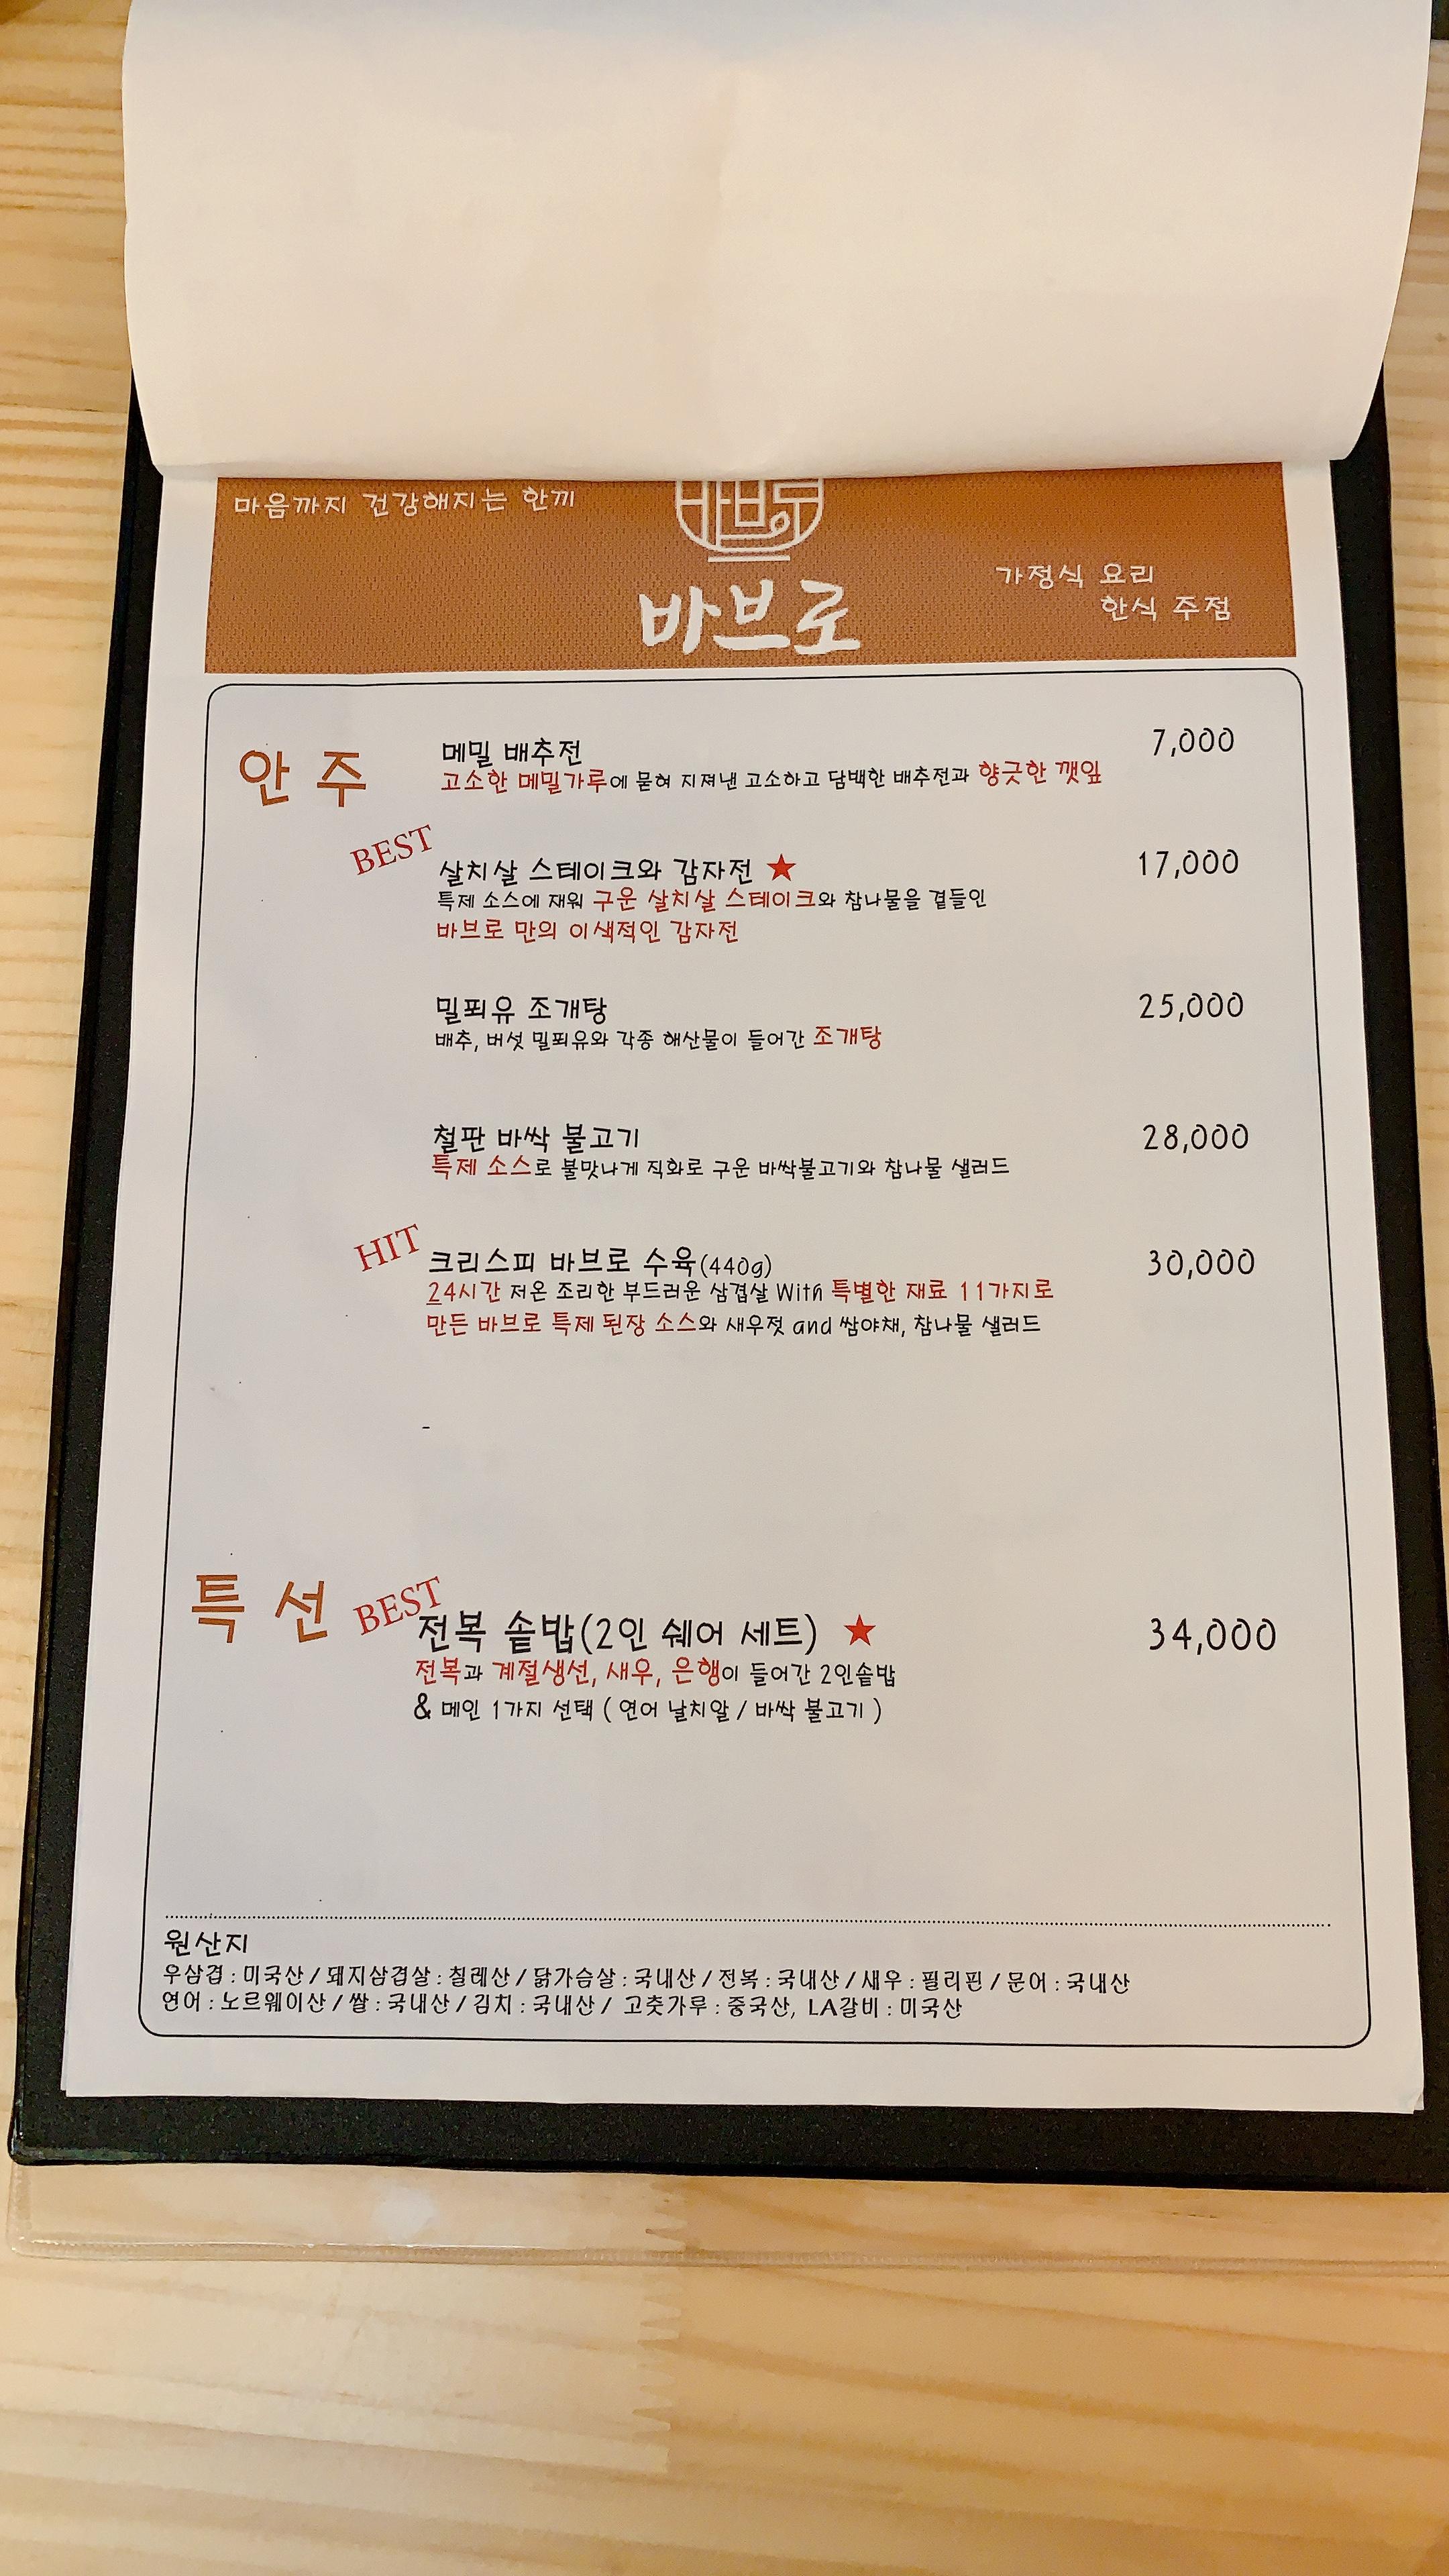 마음까지 건강해지는 한끼
바브로
가정식 요리
한식 주점
안 주
메밀 배추전 7,000
고소한 메밀가루에 묻혀 지져낸 고소하고 담백한 배추전과 향긋한 깻잎
BEST
살치살 스테이크와 감자전 ★ 17,000
특제 소스에 재워 구운 살치살 스테이크와 참나물을 곁들인
바브로 만의 이색적인 감자전
밀푀유 조개탕 25,000
배추, 버섯 밀푀유와 각종 해산물이 들어간 조개탕
철판 바싹 불고기 28,000
특제 소스로 불맛나게 직화로 구운 바싹불고기와 참나물 샐러드
HIT
크리스피 바브로 수육(440g) 30,000
24시간 저온 조리한 부드러운 삼겹살 With 특별한 재료 11가지로
만든 바브로 특제 된장 소스와 새우젓 and 쌈야채, 참나물 샐러드
-
특 선
BEST
전복 솥밥(2인 쉐어 세트) ★ 34,000
전복과 계절생선, 새우, 은행이 들어간 2인솥밥
& 메인 1가지 선택 ( 연어 날치알 / 바싹 불고기 )
원산지
우삼겹 : 미국산 / 돼지삼겹살 : 칠레산 / 닭가슴살 : 국내산 / 전복 : 국내산 / 새우 : 필리핀 / 문어 : 국내산
연어 : 노르웨이산 / 쌀 : 국내산 / 김치 : 국내산 / 고춧가루 : 중국산, LA갈비 : 미국산